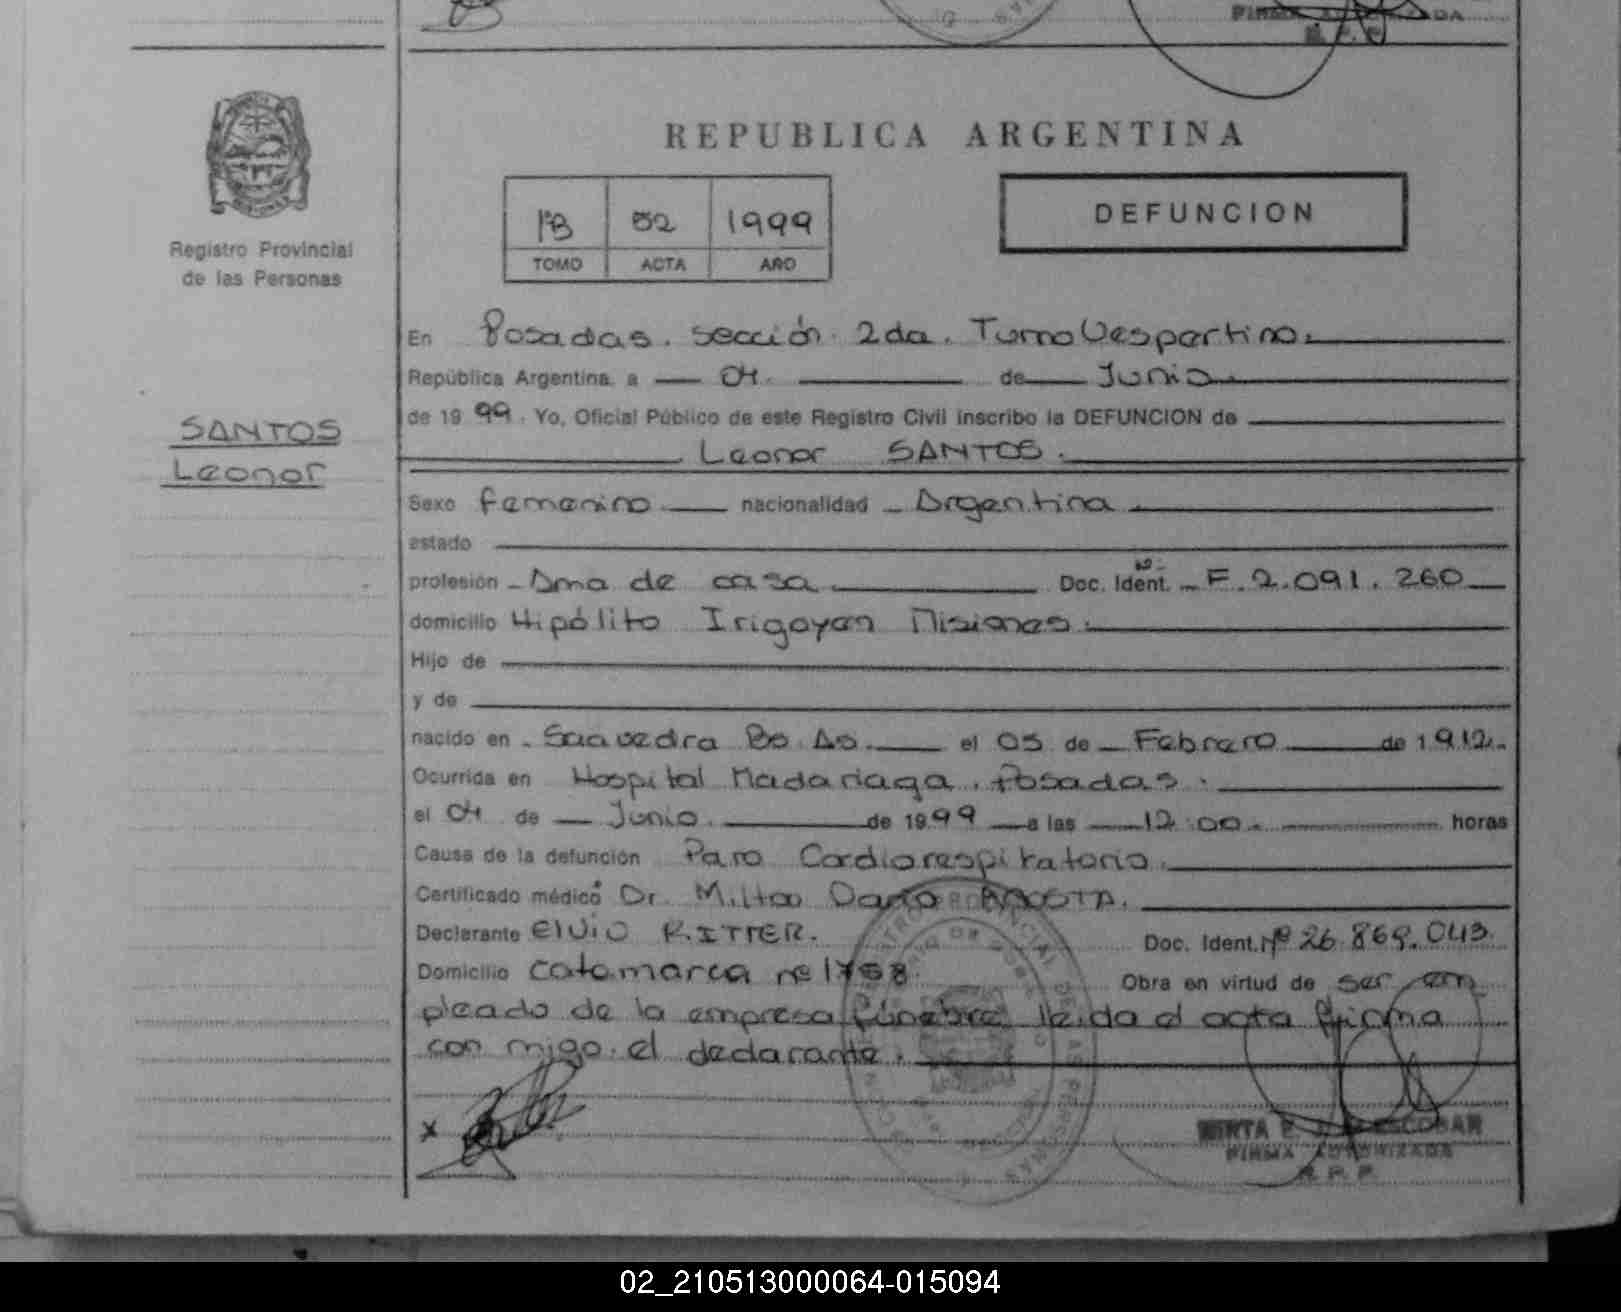 FIRMA AUTORIZADA
R. P. P.
REPUBLICA ARGENTINA
1ºB 52 1999
TOMO ACTA AÑO
DEFUNCION
Registro Provincial
de las Personas
SANTOS
Leonor
En Posadas. sección 2da. Turno Vespertino.
República Argentina, a 04. de Junio
de 1999. Yo, Oficial Público de este Registro Civil inscribo la DEFUNCION de
Leonor SANTOS.
Sexo femenino nacionalidad Argentina
estado
profesión Ama de casa Doc. Ident. Nº F. 2.091.260
domicilio Hipólito Irigoyen Misiones.
Hijo de
y de
nacido en Saavedra Bs. As. el 05 de Febrero de 1912.
Ocurrida en Hospital Madariaga. Posadas.
el 04 de Junio. de 1999 a las 12:00. horas
Causa de la defunción Paro Cardiorespiratorio.
Certificado médico Dr. Milton Darío ACOSTA.
Declarante Elvio RITTER. Doc. Ident. Nº 26.869.043
Domicilio Catamarca nº 1758. Obra en virtud de ser em
pleado de la empresa fúnebre leida el acta firma
con migo el declarante.
x
MIRTA E. ESCOBAR
FIRMA AUTORIZADA
R. P. P.
02_210513000064-015094